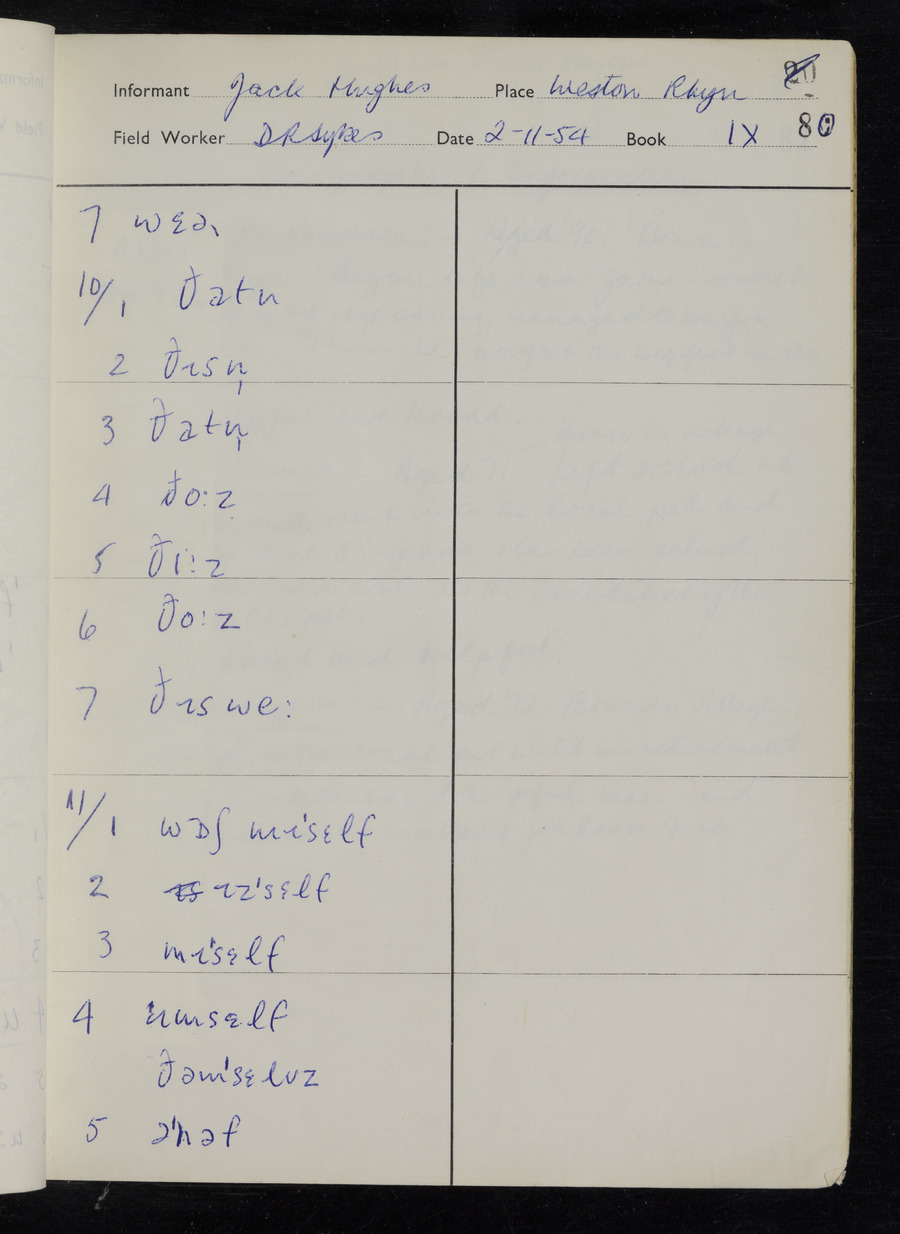 Informant Jack Hughes Place Weston Rhyn 20
Field Worker DR Sykes Date 2-11-54 Book IX 80
7 wɛə
10/1 ðatn
2 ðɪsn̩
3 ðatn̩
4 ðo:z
5 ði:z
6 ðo:z
7 ðɪswe:
11/1 wɒʃ mɪ'sɛlf
2 ɪz'sɛlf
3 mɪ'sɛlf
4 ɪmsɛlf
ðəm'sɛlvz
5 ə'naf